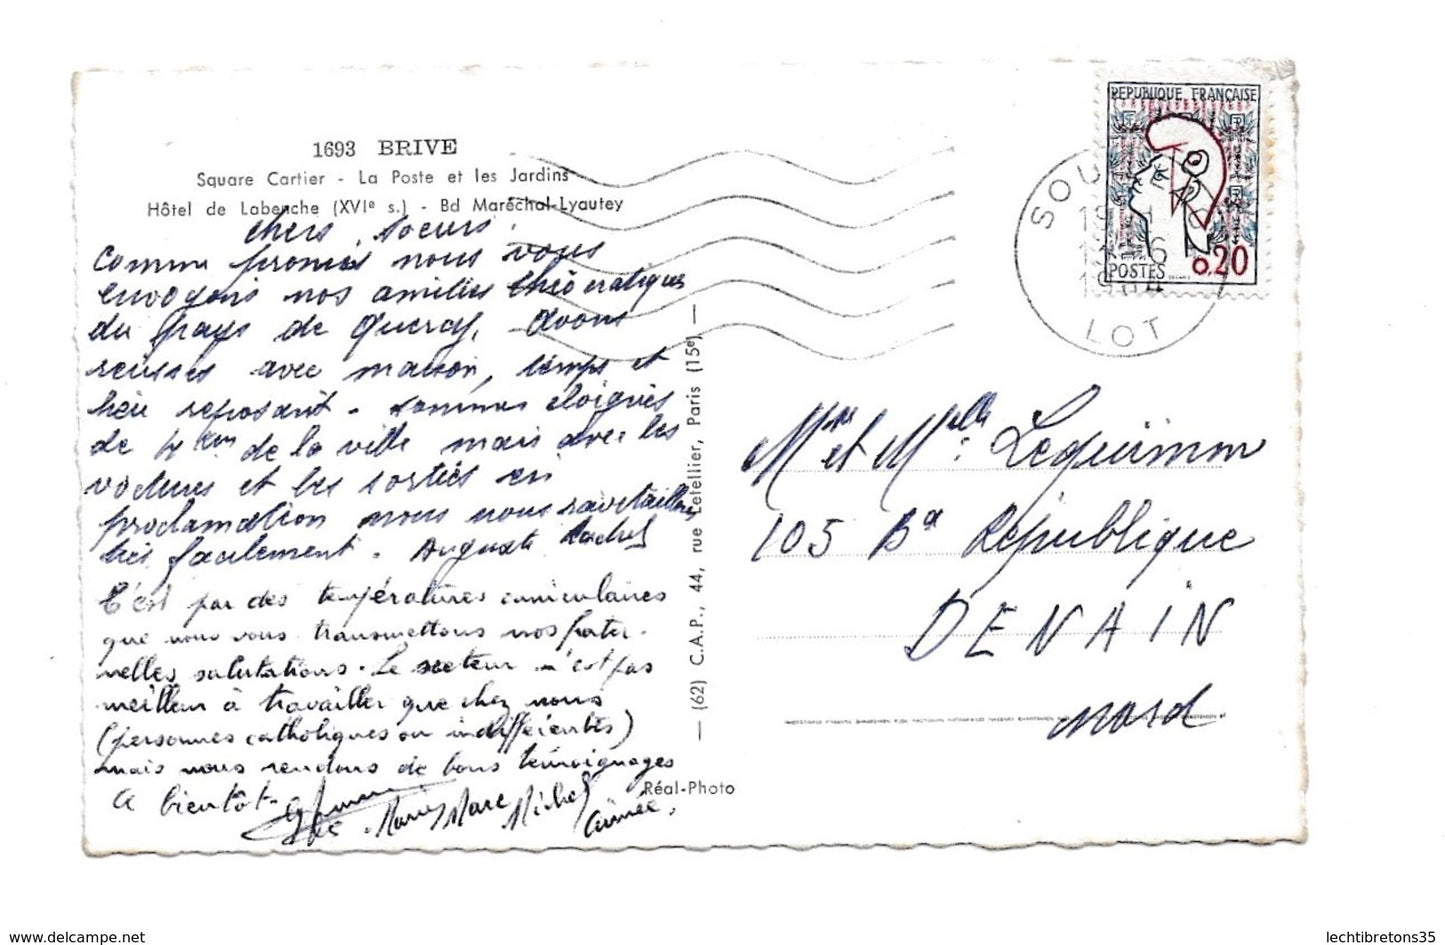 1693 BRIVE
Square Cartier - La Poste et les Jardins
Hôtel de Labenche (XVIe s.) - Bd Maréchal-Lyautey
Chers soeurs,
Comme promis nous vous
envoyons nos amitiés théocratiques
du pays de Quercy. Avons
reussis avec maison, temps et
lieu reposant. Sommes eloignés
de 4 km de la ville mais avec les
voitures et les sorties en
proclamation nous nous ravitaillons
très facilement. Auguste Rachel
C'est par des températures caniculaires
que nous vous transmettons nos frater-
nelles salutations. Le secteur n'est pas
meilleur à travailler que chez nous
(personnes catholiques ou indifférentes)
mais nous rendons de bons témoignages
A bientôt.
Marc Michel
Aimée.
— (62) C.A.P., 44, rue Letellier, Paris (15e) —
Réal-Photo
REPUBLIQUE FRANÇAISE
POSTES 0,20
SOU
LOT
Mme et Melle Lequimme
105 Bd République
DENAIN
Nord
www.delcampe.net
lechtibretons35